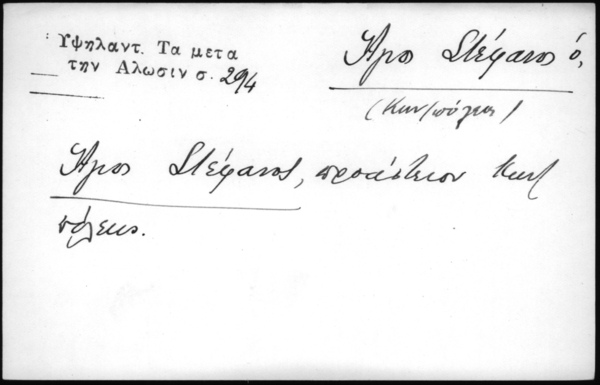 Ὑψηλαντ. Τα μετα
την Αλωσιν σ. 294
Ἅγιος Στέφανος ὁ,
(Κων/πόλεως)
Ἅγιος Στέφανος, προάστειον Κων/
πόλεως.